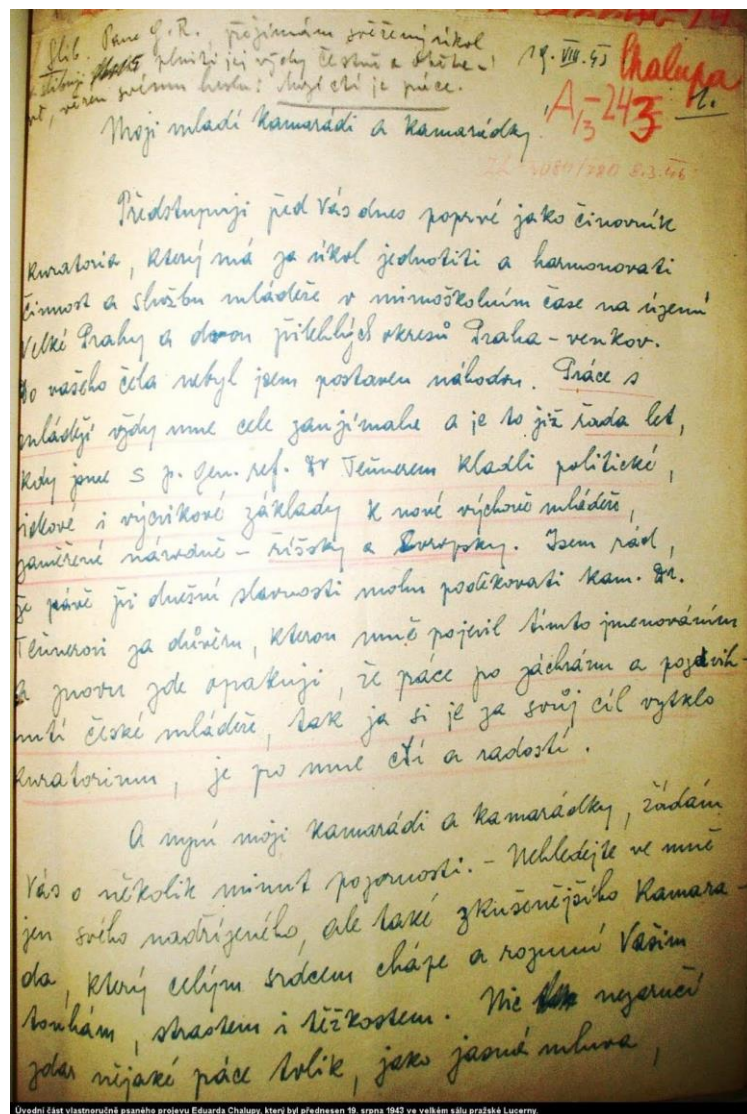 Slib. Pane G.R. přijímám svěřený úkol
a slibuji plniti jej vždy čestně a
věren svému heslu: Mojí ctí je práce.
19. VIII. 43
Chalupa
A/3-243
1.
Moji mladí kamarádi a kamarádky
8.3.46
Předstupuji před Vás dnes poprvé jako činovník
kuratoria, který má za úkol jednotiti a harmonovati
činnost a službu mládeže v mimoškolním čase na území
Velké Prahy a dvou přilehlých okresů Praha-venkov.
Do vašeho čela nebyl jsem postaven náhodou. Práce s
mládeží vždy mne cele zaujímala a je to již řada let,
kdy jsme s p. gen. ref. Dr Teunerem kladli politické,
i výcvikové základy k nové výchově mládeže,
zaměřené národně - říšsky a Evropsky. Jsem rád,
že právě při dnešní slavnosti mohu poděkovati kam. Dr.
Teunerovi za důvěru, kterou mně pojevil tímto jmenováním
A znovu zde opakuji, že práce po záchranu a pozdvih-
nutí české mládeže, tak ja si je za svůj cíl vytklo
kuratorium, je pro mne ctí a radostí.
A nyní moji kamarádi a kamarádky, žádám
Vás o několik minut pozornosti. - Nehledejte ve mně
jen svého nadřízeného, ale také zkušenějšího kamará-
da, který celým srdcem chápe a rozumí Vašim
touhám, strastem i těžkostem. Nic nezaručí
zdar nějaké práce tolik, jako jasná mluva,
Úvodní část vlastnoručně psaného projevu Eduarda Chalupy, který byl přednesen 19. srpna 1943 ve velkém sálu pražské Lucerny.